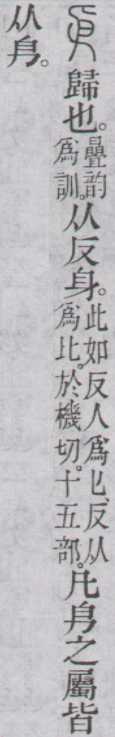 㐆歸也。疊韵爲訓。从反身。此如反人爲匕、反从爲比。於機切。十五部。凡㐆之屬皆
从㐆。